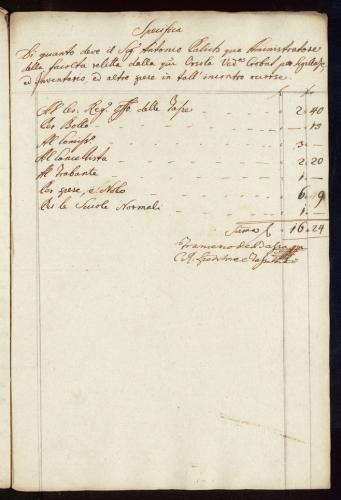 Specifica
Di quanto deve il Sig.r Antonio qua Amministratore
della facoltà relitta dalla qm Orsola Ved.a per
ed Inventario, ed altre spese in tall' incontro occorse.
f xr
Al Ces. Reg.o Off.o delle Tasse - - - 2.40
Per Bollo - - - — . 15
Al Commiss.o - - - 3 . —
Al Cancellista - - - 2.20
Al Trabante - - - 1 . —
Per spese, e Nolo - - - 6.09
Per le Scuole Normali - - - 1 . —
Suma f 16.24
Francesco de